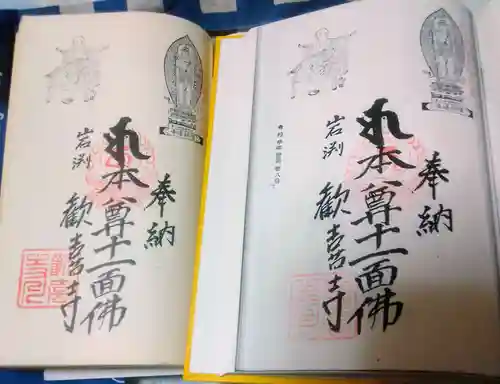 奉納
本尊十一面佛
岩渕
歓喜寺
奉納
本尊十一面佛
岩渕
歓喜寺